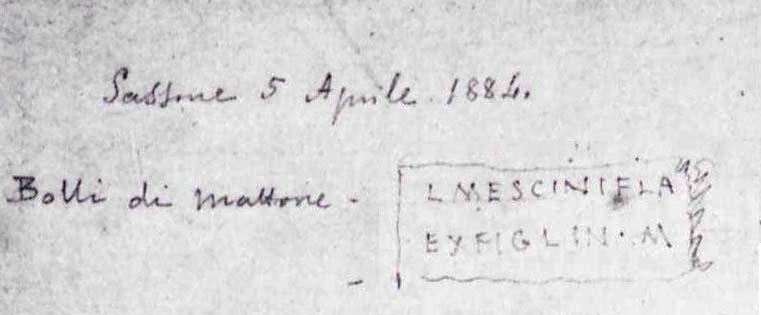 Sassone 5 Aprile 1884.
Bolli di mattone - L MESCINIELA
EXFIGLIN · M